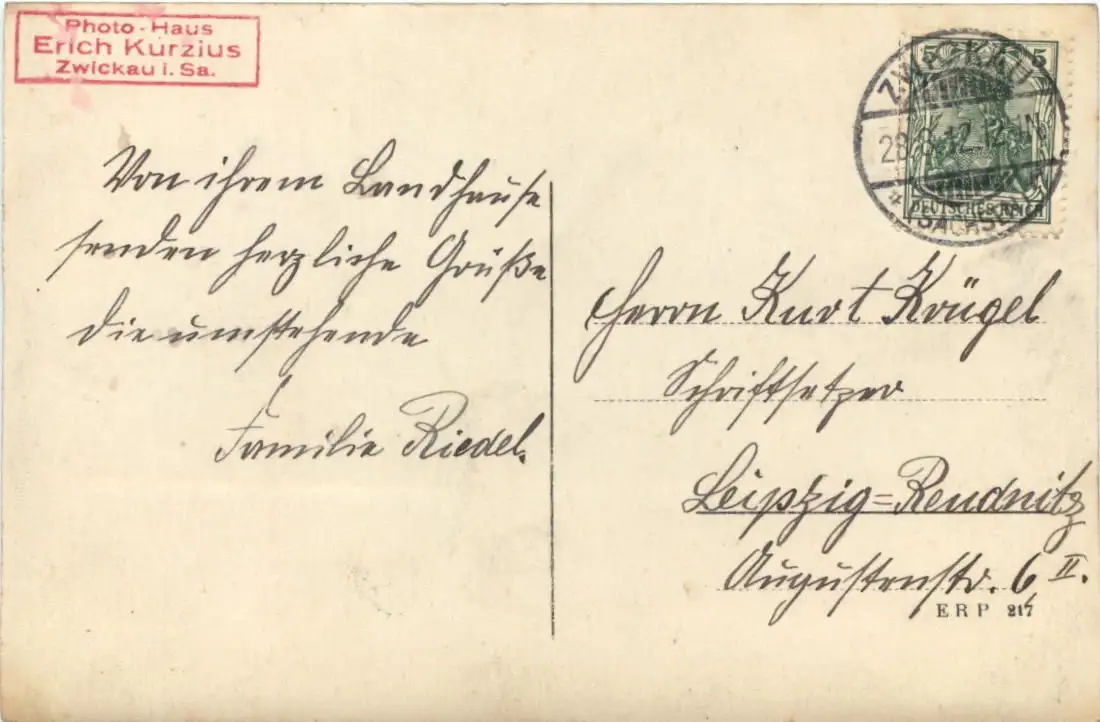 Photo-Haus
Erich Kurzius
Zwickau i. Sa.
Von ihrem Landhause
senden herzliche Grüße
die umstehende
Familie Riedel.
5 5
DEUTSCHES REICH
ZWICKAU
28. 12
SACHS
Herrn Kurt Krügel
Schriftsetzer
Leipzig=Reudnitz
Augustenstr. 6, II.
ERP 217